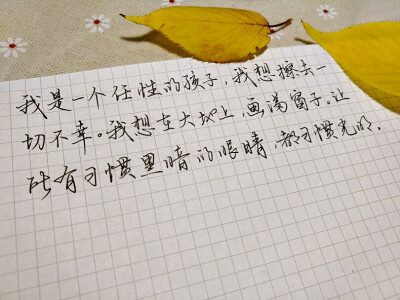 我是一个任性的孩子，我想擦去一
切不幸。我想在大地上，画满窗子。让
所有习惯黑暗的眼睛，都习惯光明。